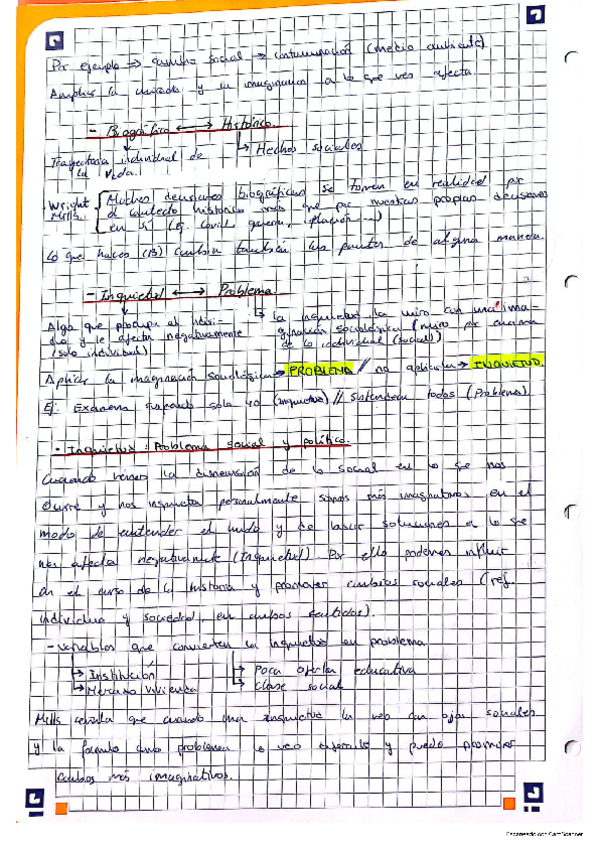 Por ejemplo → cambio social → contaminación (medio ambiente).
Ampliar la mirada y su imaginación a lo que ves afecta.
- Biográfico ↔ Histórico.
Trayectoria individual de la vida.
↳ Hechos sociales
Wright Mills
Muchas decisiones biográficas se toman en realidad por
el contexto histórico más que por nuestras propias decisiones
en sí (Ej. covid, guerra, inflación...)
Lo que haces (13) cambia también las pautas de alguna manera
- Inquietud ↔ Problema.
Algo que preocupa al indivi-
duo y le afecta negativamente
(solo individual)
↳ la inquietud la miro con una ima-
ginación sociológica (miro por encima
de lo individual (social))
Aplicar la imaginación sociológica → PROBLEMA // no aplicar → INQUIETUD.
Ej: Examen suspendo solo yo (Inquietud) // suspenden todos (Problema).
- Inquietud: Problema social y político.
Cuando vemos la dimensión de lo social en lo que nos
ocurre y nos inquieta personalmente somos más imaginativos en el
modo de entender el mundo y de buscar soluciones a lo que
nos afecta negativamente (Inquietud). Por ello podemos influir
en el curso de la historia y promover cambios sociales (ref.
individuo y sociedad, en ambos sentidos).
- variables que convierten la inquietud en problema
↳ Institución
↳ Mercado vivienda
↳ Poca oferta educativa
↳ Clase social
Mills señala que cuando una inquietud la veo con ojos sociales
y la formulo como problema lo veo diferente y puedo promover
cambios más imaginativos.
Escaneado con CamScanner